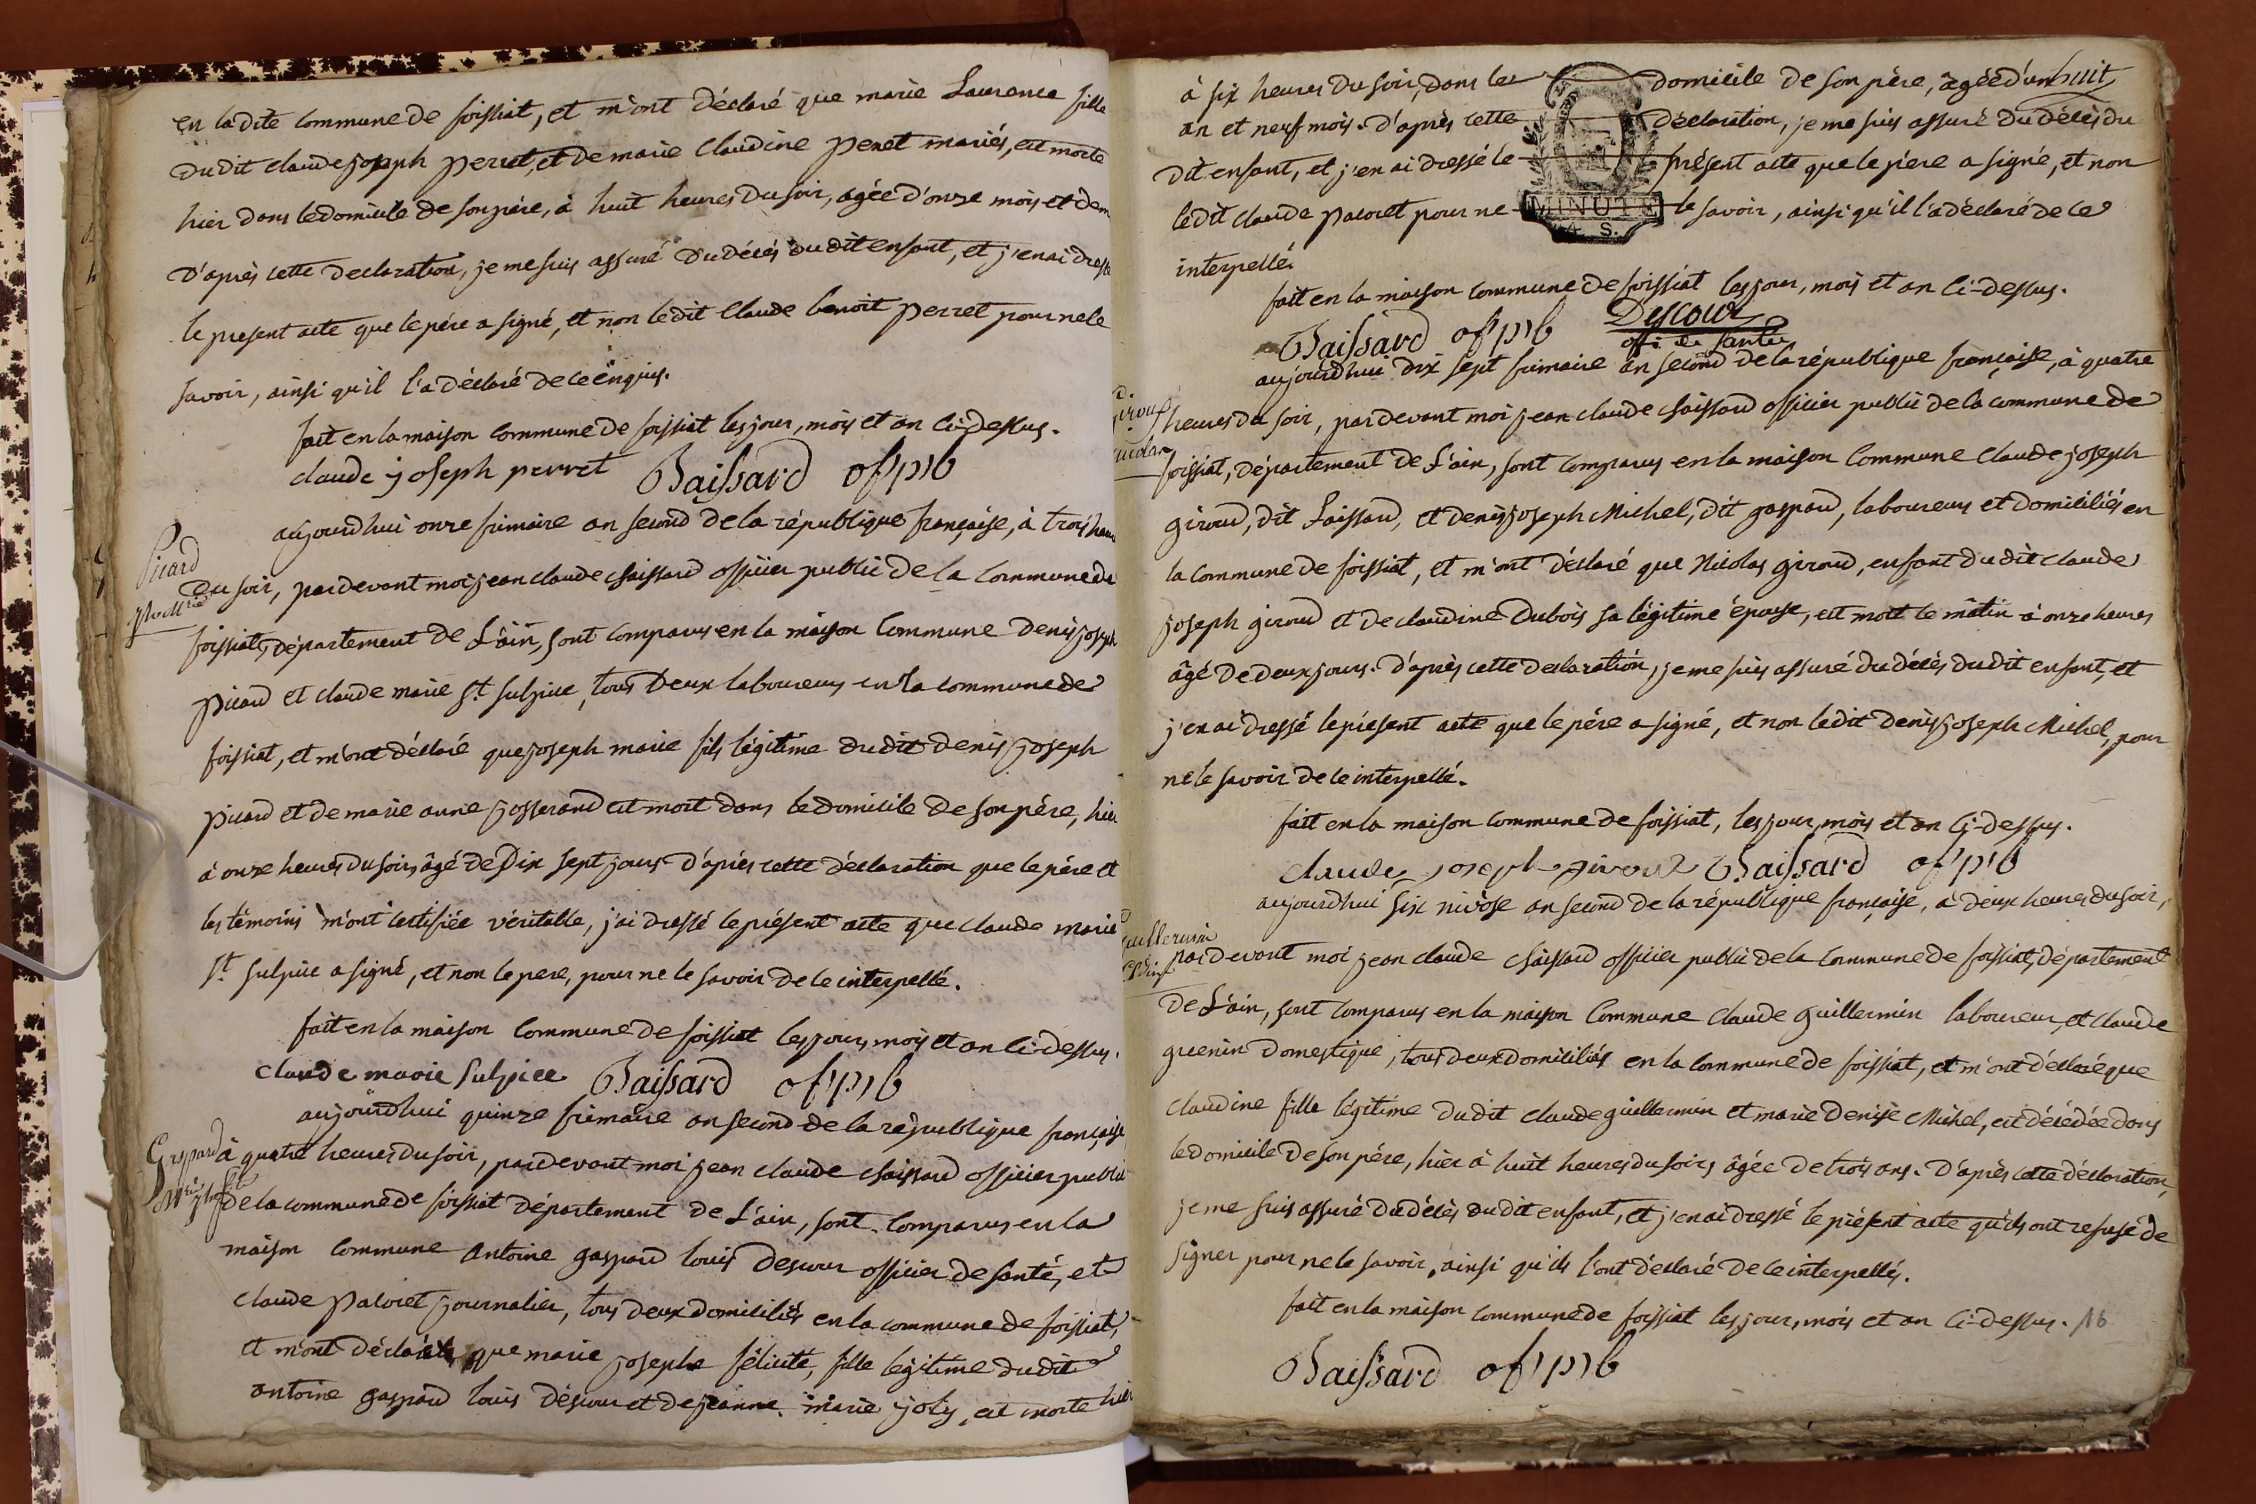 en ladite commune de foissiat, et m'ont déclaré que marie Laurence fille
dudit claude joseph perret, et de marie claudine penet mariés, est morte
hier dans le domicile de son père, à huit heures du soir, agée d'onze mois et dem
D'après cette declaration, je me suis assuré du décés dudit enfant, et j'en ai dressé
le present acte que le pére a signé, et non ledit claude benoit perret pour ne le
savoir, ainsi qu'il l'a déclaré de ce enquis.
fait en la maison commune de foissiat les jour, mois et an ci-dessus.
claude joseph perret Chaissard of pub
Picard
aujourdhui onze frimaire an second de la république française, à trois heures
du soir, pardevant moi jean claude chaissard officier public de la commune de
foissiat, département de L'ain, sont comparus en la maison commune denis joseph
picard et claude marie St. sulpice, tous deux laboureurs en la commune de
foissiat, et m'ont déclaré que joseph marie fils légitime dudit denis joseph
picard et de marie anne josserand est mort dans le domicile de son pére, hier
à onze heures du soir, âgé de dix sept jours. D'après cette déclaration que le pére et
les témoins m'ont certifiée véritable, j'ai dressé le présent acte que claude marie
St. sulpice a signé, et non le pere, pour ne le savoir de ce interpellé.
fait en la maison commune de foissiat les jour, mois et an ci-dessus.
claude marie sulpice Chaissard of pub
aujourdhui quinze frimaire an second de la république française
à quatre heures du soir, pardevant moi jean claude chaissard officier public
de la commune de foissiat département de L'ain, sont comparus en la
maison commune antoine gaspard louis descour officier de santé, et
claude pacoret journalier, tous deux domiciliés en la commune de foissiat,
et m'ont déclaré que marie josephe félicité, fille legitime dudit
antoine gaspard louis déscour et de jeanne marie joly, est morte hier
à six heures du soir, dans le domicile de son père, âgée d'un huit
an et neuf mois. d'après cette déclaration, je me suis assuré du décès du
dit enfant, et j'en ai dressé le présent acte que le pére a signé, et non
ledit claude pacoret pour ne le savoir, ainsi qu'il l'a déclaré de ce
MINUTE
4 S.
interpellé.
fait en la maison commune de foissiat les jour, mois et an ci-dessus.
Chaissard of pub Descour
offi. de santé
aujourdhui dix sept frimaire an second de la république française, à quatre
heures du soir, pardevant moi jean claude chaissard officier public de la commune de
foissiat, département de L'ain, sont comparus en la maison commune claude joseph
giroud, dit Laissard, et denis joseph Michel, dit gaspard, laboureurs et domiciliés en
la commune de foissiat, et m'ont déclaré que Nicolas giroud, enfant dudit claude
joseph giroud et de claudine dubois sa légitime épouse, est mort le matin à onze heures
âgé de deux jours. d'après cette declaration, je me suis assuré du décès dudit enfant, et
j'en ai dressé le présent acte que le pére a signé, et non ledit denis joseph Michel, pour
ne le savoir de ce interpellé.
fait en la maison commune de foissiat, les jour, mois et an ci-dessus.
claude joseph giroud Chaissard of pub
aujourdhui six nivôse an second de la république française, à deux heures du soir,
pardevant moi jean claude chaissard officier public de la commune de foissiat, département
de L'ain, sont comparus en la maison commune claude guillermin laboureur, et claude
guenin domestique, tous deux domiciliés en la commune de foissiat, et m'ont déclaré que
claudine fille légitime dudit claude guillermin et marie denise Michel, est décédée dans
le domicile de son pére, hier à huit heures du soir, âgée de trois ans. D'après cette déclaration,
je me suis assuré du décès dudit enfant, et j'en ai dressé le présent acte qu'ils ont refusé de
signer pour ne le savoir, ainsi qu'ils l'ont déclaré de ce interpellés.
fait en la maison commune de foissiat les jour, mois et an ci-dessus. 16
Chaissard of pub